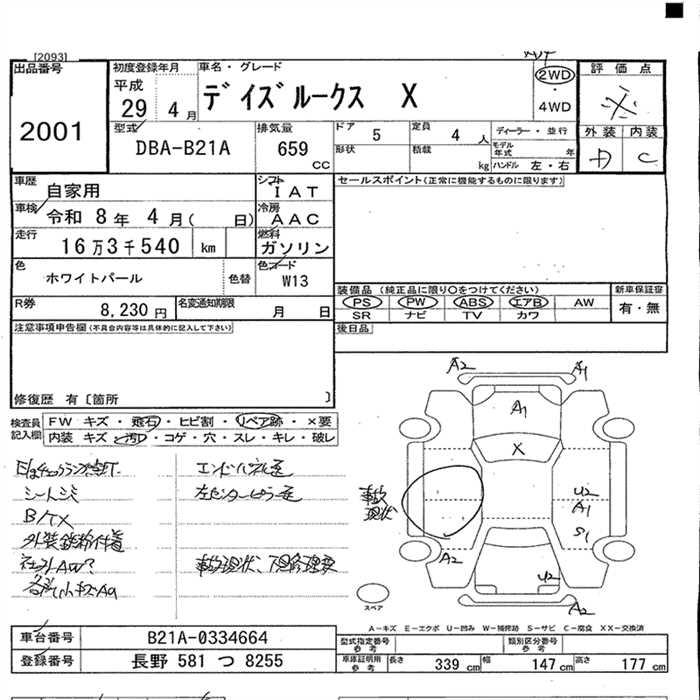 [2093]
出品番号
2001
初度登録年月
平成
29 4 月
車名・グレード
デイズルークス X
2WD
・
4WD
評価点
外装 内装
D C
型式
DBA-B21A
排気量
659
CC
ドア 5
定員 4 人
形状
積載
kg
ディーラー・並行
モデル
年式 年
ハンドル 左・右
車歴
自家用
シフト
IAT
車検
令和 8 年 4 月( 日)
冷房
AAC
走行
16万3千540 km
燃料
ガソリン
色
ホワイトパール
色替
色コード
W13
R券
8,230 円
名変通知期限
月 日
セールスポイント(正常に機能するものに限ります)
装備品 (純正品に限り○をつけてください)
PS PW ABS エアB AW
SR ナビ TV カワ
新車保証書
有・無
後日品
注意事項申告欄(不具合内容等は具体的に記入して下さい)
修復歴 有〔箇所 〕
検査員
記入欄
FW キズ・飛石・ヒビ割・リペア跡・×要
内装 キズ・汚れ・コゲ・穴・スレ・キレ・破レ
シートシミ
外装鉄粉付着
社外AW?
エンドパネル歪
左センターピラー歪
事故現状、下回修理要
A2
A1
A1
X
事故
現状
U2
A1
S1
A2
U2
A2
スペア
A―キズ E―エクボ U―凹み W―補修跡 S―サビ C―腐食 XX―交換済
車台番号
B21A-0334664
登録番号
長野 581 つ 8255
型式指定番号
参考
類別区分番号
参考
車庫証明用
参考
長さ 339 cm
幅 147 cm
高さ 177 cm